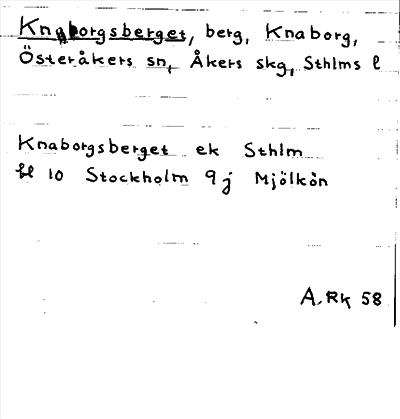 Knaborgsberget, berg, Knaborg,
Österåkers sn, Åkers skg, Sthlms l
Knaborgsberget ek Sthlm
bl 10 Stockholm 9j Mjölkön
A. Rk 58